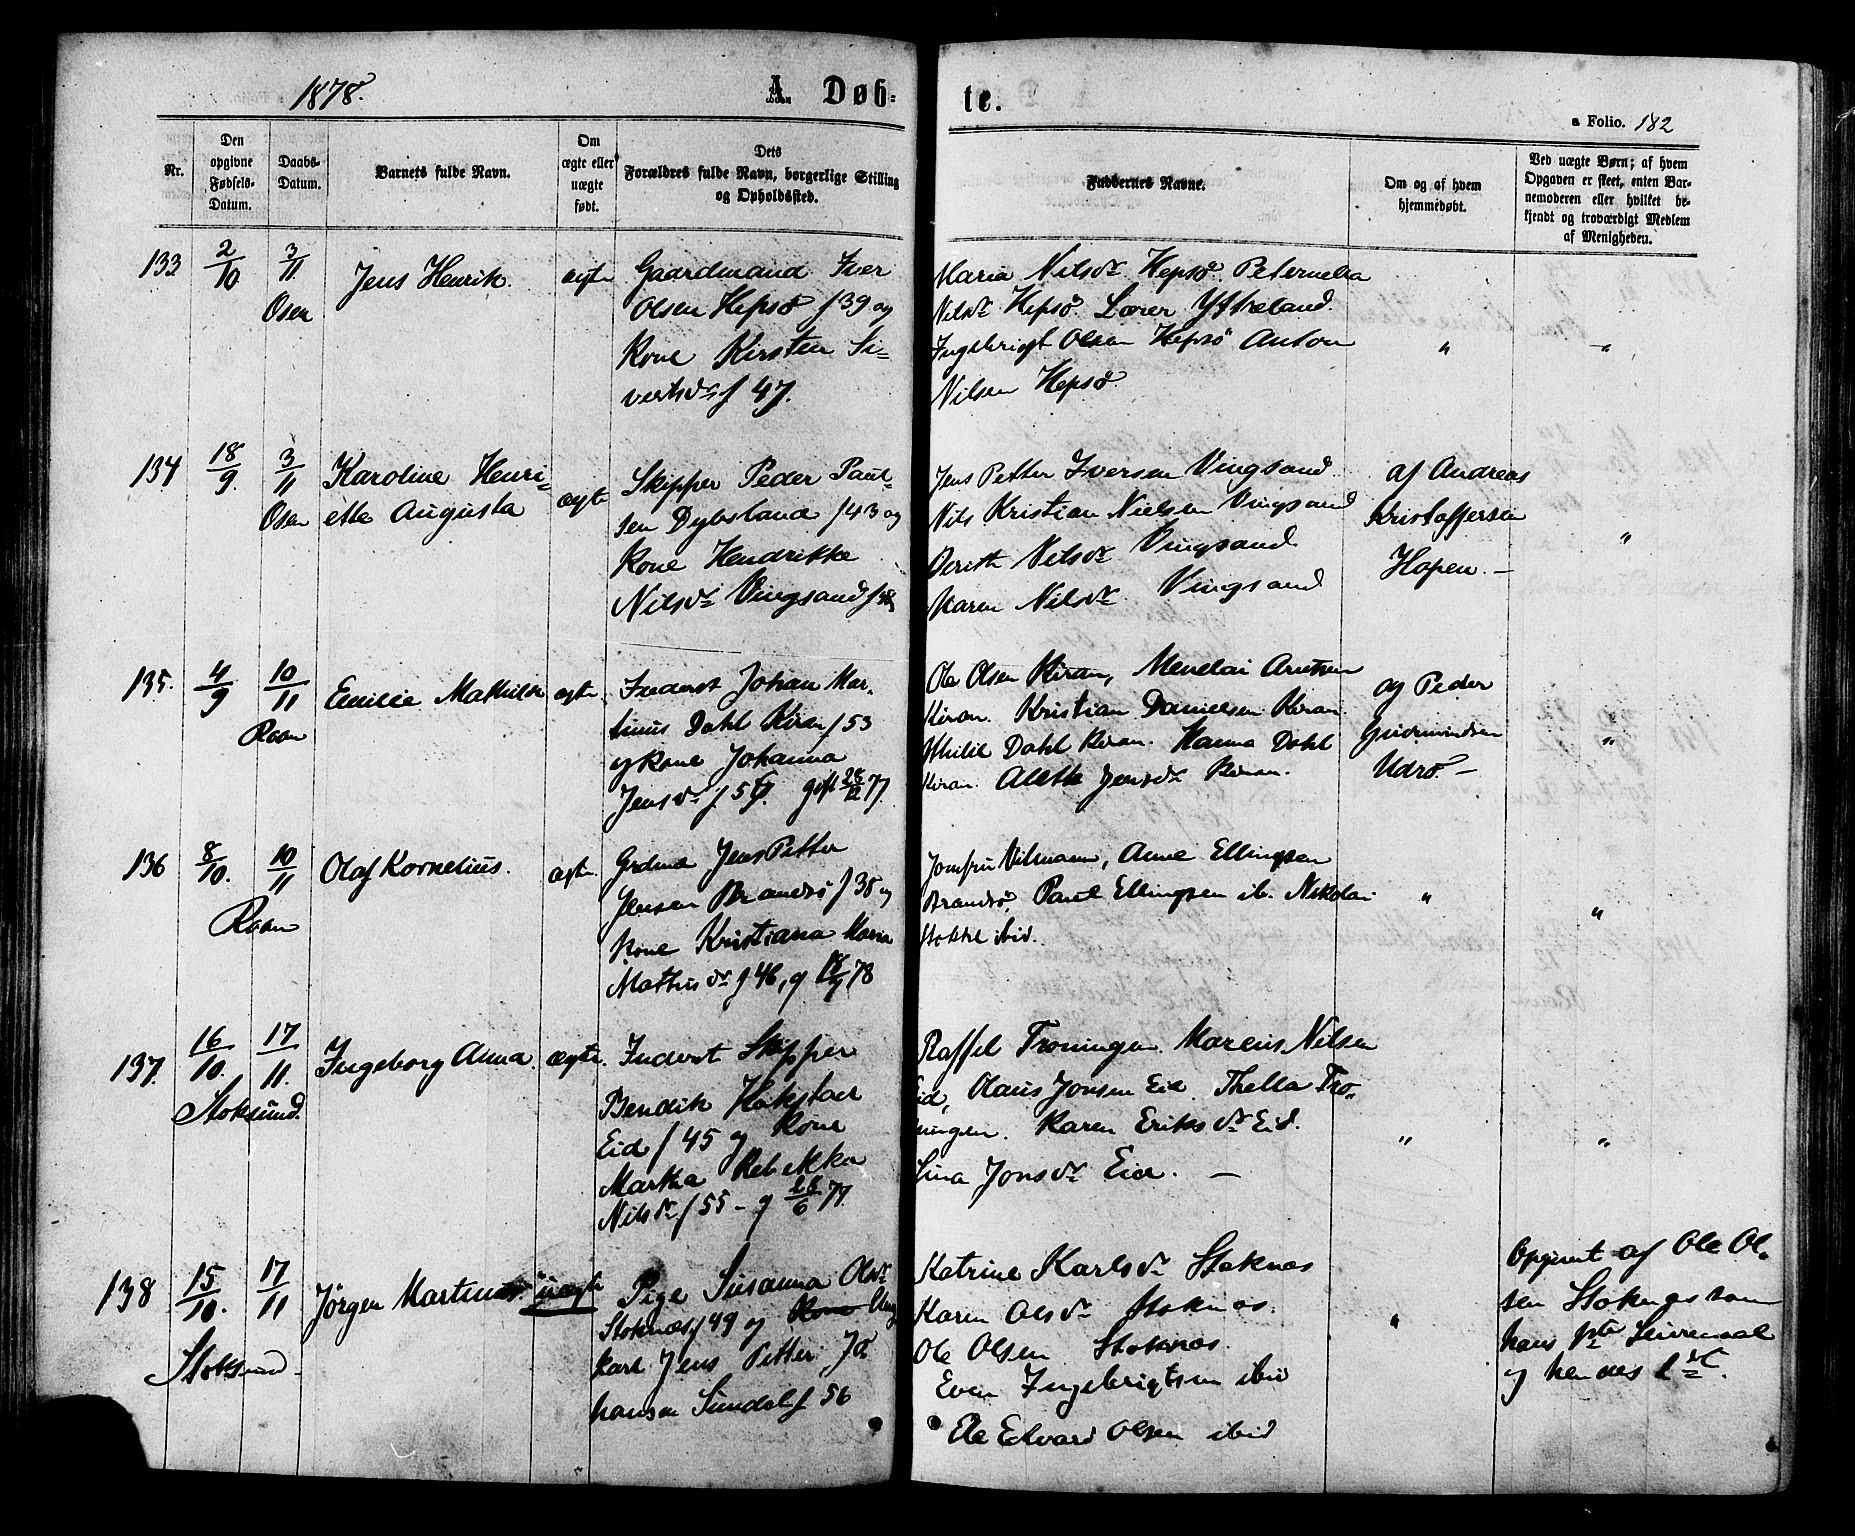 1878.
A. Døb-
te.
a Folio. 182
Nr.
Den opgivne Fødsels-Datum.
Daabs-Datum.
Barnets fulde Navn.
Om ægte eller uægte født.
Dets Forældres fulde Navn, borgerlige Stilling og Opholdssted.
Faddernes Navne.
Om og af hvem hjemmedøbt.
Ved uægte Børn; af hvem Opgaven er skeet, enten Bar-nemoderen eller hvilket be-kjendt og troværdigt Medlem af Menigheden.
133
2/10
3/11
Osen
Jens Henrik.
ægte
Gaardmand Iver
Olsen Hepsø f 39 og
Kone Kirsten Si-
vertsdr f 47.
Maria Nilsdr Hepsø. Peternella
Nilsdr Hepsø. Lærer Ystreland.
Ingebrigt Olsen Hepsø Anton
Nilsen Hepsø.
"
"
134
18/9.
3/11
Osen
Karoline Henri-
ette Augusta
ægte
Skipper Peder Paul-
sen f 43 og
Kone Hendrikke
Nilsdr Vingsand f
Jens Petter Iversen Vingsand
Nils Kristian Nielsen Vingsand
Berith Nilsdr Vingsand.
Karen Nilsdr Vingsand
af Andreas
Kristoffersen
Hopen. -
"
135.
4/9
10/11
Roan
Emilie Mathilde
ægte
Inderst Johan Mar-
tinus Dahl Kiran f 53
og Kone Johanna
Jensdr f. 5 gift 28/12 77.
Ole Olsen Kiran, Mendlai Arntsen
Kiran. Kristian Danielsen Kiran.
Dahl Kiran. Hanna Dahl
Kiran. Aleth Jensdr Kiran.
af Peder
Gudmundsen
Udrø. -
"
136
8/10.
10/11
Roan
Olaf Kornelius.
ægte.
Grdmd Jens Petter
Jensen Brandsø f 38 og
Kone Kristiana Maria
Mathisdr f 46, g 78
Jomfru Vilmann, Anne Ellingsen
Brandsø, Paul Ellingsen ib. Nikolai
Stokke ibid.
"
"
137.
16/10.
17/11.
Stoksund.
Ingeborg Anna.
ægte.
Inderst Skipper
Bendik Hakstad
Eid f 45 og Kone
Martha Rebekka
Nilsdr f 55 - g 28/6 77.
Raffel Troningen. Marcus Nilsen
Eid, Olaus Jonsen Eid. Thella Tro-
ningen. Karen Eriksdr Eid.
Lina Jonsdr Eid. -
"
"
138
15/10.
17/11
Stoksund -
Jørgen Martinus.
uægte
Pige Susanna Olsdr
Stoknæs f 49 og Kone Ung
karl Jens Petter Jo-
hansen Sundal f 56
Katrine Karlsdr Stoknæs
Karen Olsdr Stoknæs.
Ole Olsen Stoknæs.
Even Ingebrigtsen ibid
Ole Edvard Olsen ibid
"
Opgivet af Ole Ol-
sen Stoknæs som
hans Leiermaal
og hendes 1ste.